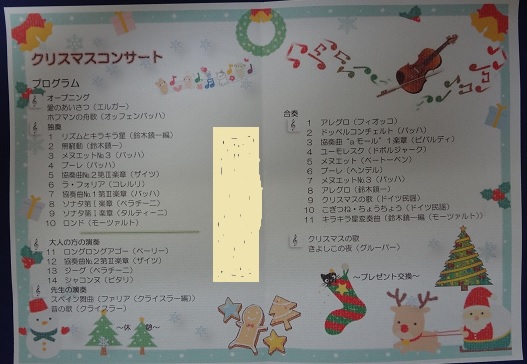 クリスマスコンサート
プログラム
オープニング
愛のあいさつ（エルガー）
ホフマンの舟歌（オッフェンバッハ）
独奏
1 リズムとキラキラ星（鈴木鎮一編）
2 無窮動（鈴木鎮一）
3 メヌエット№3（バッハ）
4 ブーレ（バッハ）
5 協奏曲№2第Ⅲ楽章（ザイツ）
6 ラ・フォリア（コレルリ）
7 協奏曲№1第Ⅰ楽章（バッハ）
8 ソナタ第Ⅰ楽章（ベラチーニ）
9 ソナタ第Ⅰ楽章（タルティーニ）
10 ロンド（モーツァルト）
大人の方の演奏
11 ロングロングアゴー（ベーリー）
12 協奏曲№2第Ⅲ楽章（ザイツ）
13 ジーグ（ベラチーニ）
14 シャコンヌ（ビタリ）
先生の演奏
スペイン舞曲（ファリァ（クライスラー編））
昔の歌（クライスラー）
～休 憩～
合奏
1 アレグロ（フィオッコ）
2 ドッペルコンチェルト（バッハ）
3 協奏曲“aモール”1楽章（ビバルディ）
4 ユーモレスク（ドボルジャーク）
5 メヌエット（ベートーベン）
6 ブーレ（ヘンデル）
7 メヌエット№3（バッハ）
8 アレグロ（鈴木鎮一）
9 クリスマスの歌（ドイツ民謡）
10 こぎつね・ちょうちょう（ドイツ民謡）
11 キラキラ星変奏曲（鈴木鎮一編（モーツァルト））
クリスマスの歌
きよしこの夜（グルーバー）
～プレゼント交換～